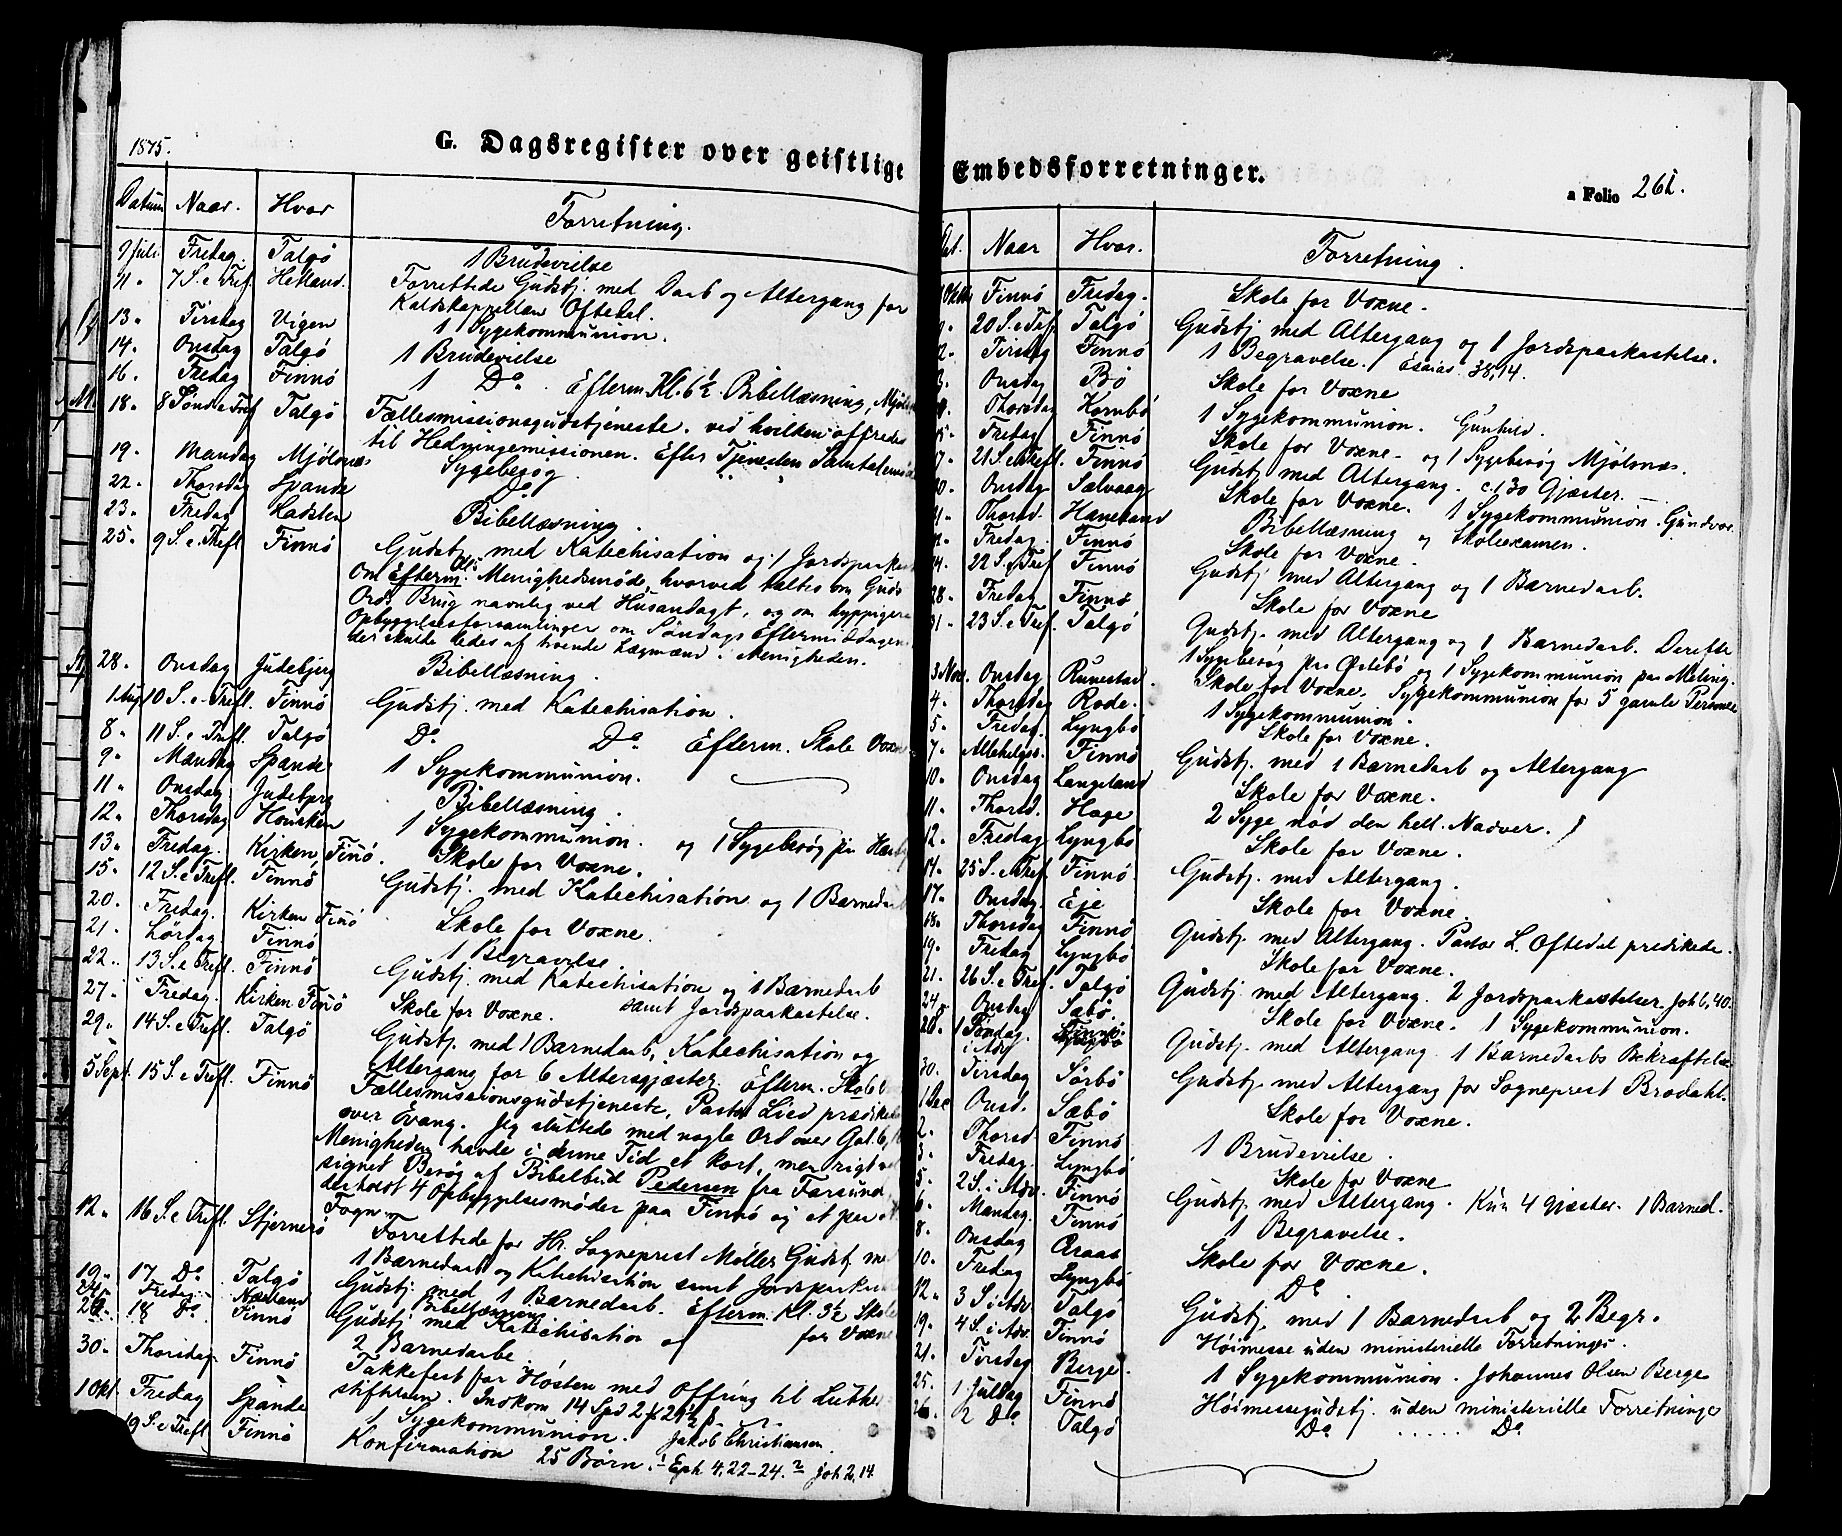 1875.
G. Dagsregister over geistlige
Datum Naar. Hvor Forretning.
9 Juli. Fredag. Talgö 1 Brudevielse
11. 7 S. e Tref. Helland. Forrettede Gudstj. med Daab og Altergang for
Kaldskappellan Oftedal.
13. Tirsdag Vigen 1 Sygekommunion.
14. Onsdag Talgö 1 Brudevielse
16. Fredag Finnö 1 Do. Efterm. Kl. 6½ Bibellæsning,
18. 8 Sönd e Tref Talgö Fællesmissionsgudstjeneste. ved hvilken offredes
til Hedningemissionen. Efter Tjenesten
19. Mandag Mjölsnæs Sygebesög
22. Thorsdag Spande Do
23. Fredag Ladsten Bibellæsning.
25. 9 S. e. Trefl. Finnö Gudstj. med Katechisation og 1 Jordspaakast
Om Efterm. Menighedsmöde, hvorved taltes om Guds
Ords Brug navnlig ved Husandagt, og om hyppigere
Opbyggelsesforsamlinger om Söndags Eftermiddagen
der skulde ledes af troende Lægmænd i Menigheden.
28. Onsdag Judebjerg Bibellæsning.
1 Aug 10 S. e Trefl. Finnö Gudstj. med Katechisation.
8. 11 S. e. Trefl. Talgö Do Do Efterm. Skole Voxne
9. Mandag Spande 1 Sygekommunion.
11. Onsdag Judebjerg Bibellæsning.
12. Thorsdag 1 Sygekommunion. og 1 Sygebesög
13. Fredag. Kirken, Finnö. Skole for Voxne.
15. 12 S. e Trefl. Finnö Gudstj. med Katechisation og 1 Barnedaab
20. Fredag. Kirken Finnö Skole for Voxne.
21. Lördag Finnö 1 Begravelse.
22. 13 S. e Trefl. Finnö Gudstj. med Katechisation og 1 Barnedaab
samt Jordspaakastelse.
27. Fredag. Kirken Finnö Skole for Voxne.
29. 14 S. e Trefl. Talgö Gudstj. med 1 Barnedaab, Katechisation og
Altergang for 6 Altersgjæster. Efterm. Skole
5 Sept. 15 S. e Trefl. Finnö Fællesmissionsgudstjeneste, Pastor Lied prædikede
over Evang. Jeg sluttede med nogle Ord over Gal. 6,
Menigheden havde i denne Tid et kort, men rigt vel
signet Besög af Bibelbud Pedersen fra Farsund
der holdt 4 Opbyggelsesmöder paa Finnö og et paa
Fogn.
12. 16 S. e Trefl. Stjernerö Forrettede for Hr. Sogneprest Möller Gudstj. med
1 Barnedaab og Katechisation samt Jordspaakast
19. 17 Do Talgö Gudstj. med 1 Barnedaab. Efterm. Kl. 3½ Skole
for Voxne
24. Fredag Bibellæsning
26. 18 Do Finnö Gudstj med Katechisation og
2 Barnedaabe
30. Thorsdag Finnö Takkefest for Hösten med Offring til Luther
stiftelsen. Indkom 14 Spd 2
1 Okt. Fredag Spande 1 Sygekommunion. Jakob Christiansen.
19 S. e Trefl. Finnö Konfirmation 25 Börn. 1 Eph 4, 22-24. 2 Joh 2, 14
Embedsforretninger.
a Folio 261.
Dat. Naar Hvor. Forretning.
Finnö Fredag. Skole for Voxne.
20 S. e Tref. Talgö Gudstj med Altergang og 1 Jordspaakastelse.
12. Tirsdag Finnö 1 Begravelse. Esaias 38, 14.
Onsdag Bö Skole for Voxne
Thorsdag Kornbö 1 Sygekommunion. Gunhild.
15. Fredag Finnö Skole for Voxne. og 1 Sygebesög Mjölsnæs.
17. 21 S e Trefl. Finnö Gudstj med Altergang. c. 130 Gjæster.
20. Onsdag Sælvaag Skole for Voxne. 1 Sygekommunion. Gundvor
21. Thorsd. Haneland Bibellæsning og Skoleexamen.
Fredag. Finnö Skole for Voxne.
24. 22 S. e Tref Finnö Gudstj med Altergang og 1 Barnedaab.
28. Fredag Finnö Skole for Voxne
31. 23 S. e Tref. Talgö Gudstj. med Altergang og 1 Barnedaab. Derefter
1 Sygebesög paa Östebö og 1 Sygekommunion paa Meling.
3 Nov. Onsdag Runestad. Skole for Voxne. Sygekommunion for 5 gamle Personer
4. Thorsdag Rode. 1 Sygekommunion.
5. Fredag. Lyngbö Skole for Voxne.
7. Allehelgs. Finnö Gudstj. med 1 Barnedaab og Altergang
10. Onsdag Langeland Skole for Voxne.
11. Thorsd. Hage 2 Syge nöd den hell. Nadver.
12. Fredag Lyngbö Skole for Voxne.
14. 25 S. e Tref. Finnö. Gudstj. med Altergang.
17. Onsdag. Eje Skole for Voxne.
18. Thorsdag Finnö Gudstj med Altergang. Pastor L. Oftedal predikede.
19. Fredag Lyngbö Skole for Voxne.
21. 26 S. e Tref. Talgö Gudstj med Altergang. 2 Jordspaakastelser. Joh 6, 40.
24. Onsdag Sæbö. Skole for Voxne. 1 Sygekommunion.
28. 1 Söndag. i Adv Finnö Gudstj med Altergang. 1 Barnedaabs Bekræftelse
30. Tirsdag Sörbö Gudstj med Altergang for Sogneprest Brodahl.
1 Dec Onsd. Sæbö Skole for Voxne.
2. Thorsd Finnö 1 Brudevielse.
3. Fredag. Lyngbö Skole for Voxne
5. 2 S. i Adv. Finnö Gudstj med Altergang. Kun 4 Gjæster. 1 Barned.
6. Mandag. Finnö 1 Begravelse.
8. Onsdag Skole for Voxne.
10. Fredag Lyngbö Do
12. 3 S i Adv. Talgö Gudstj. med 1 Barnedaab og 2 Begr.
19. 4 S. i Adv. Finnö Höimesse uden ministerielle Forretninger.
21. Tirsdag Berge 1 Sygekommunion. Johannes Olsen Berge
25. 1 Juldag Finnö Höimessegudstj. uden ministerielle Forretninger
26. 2 Do Talgö Do ..... Do